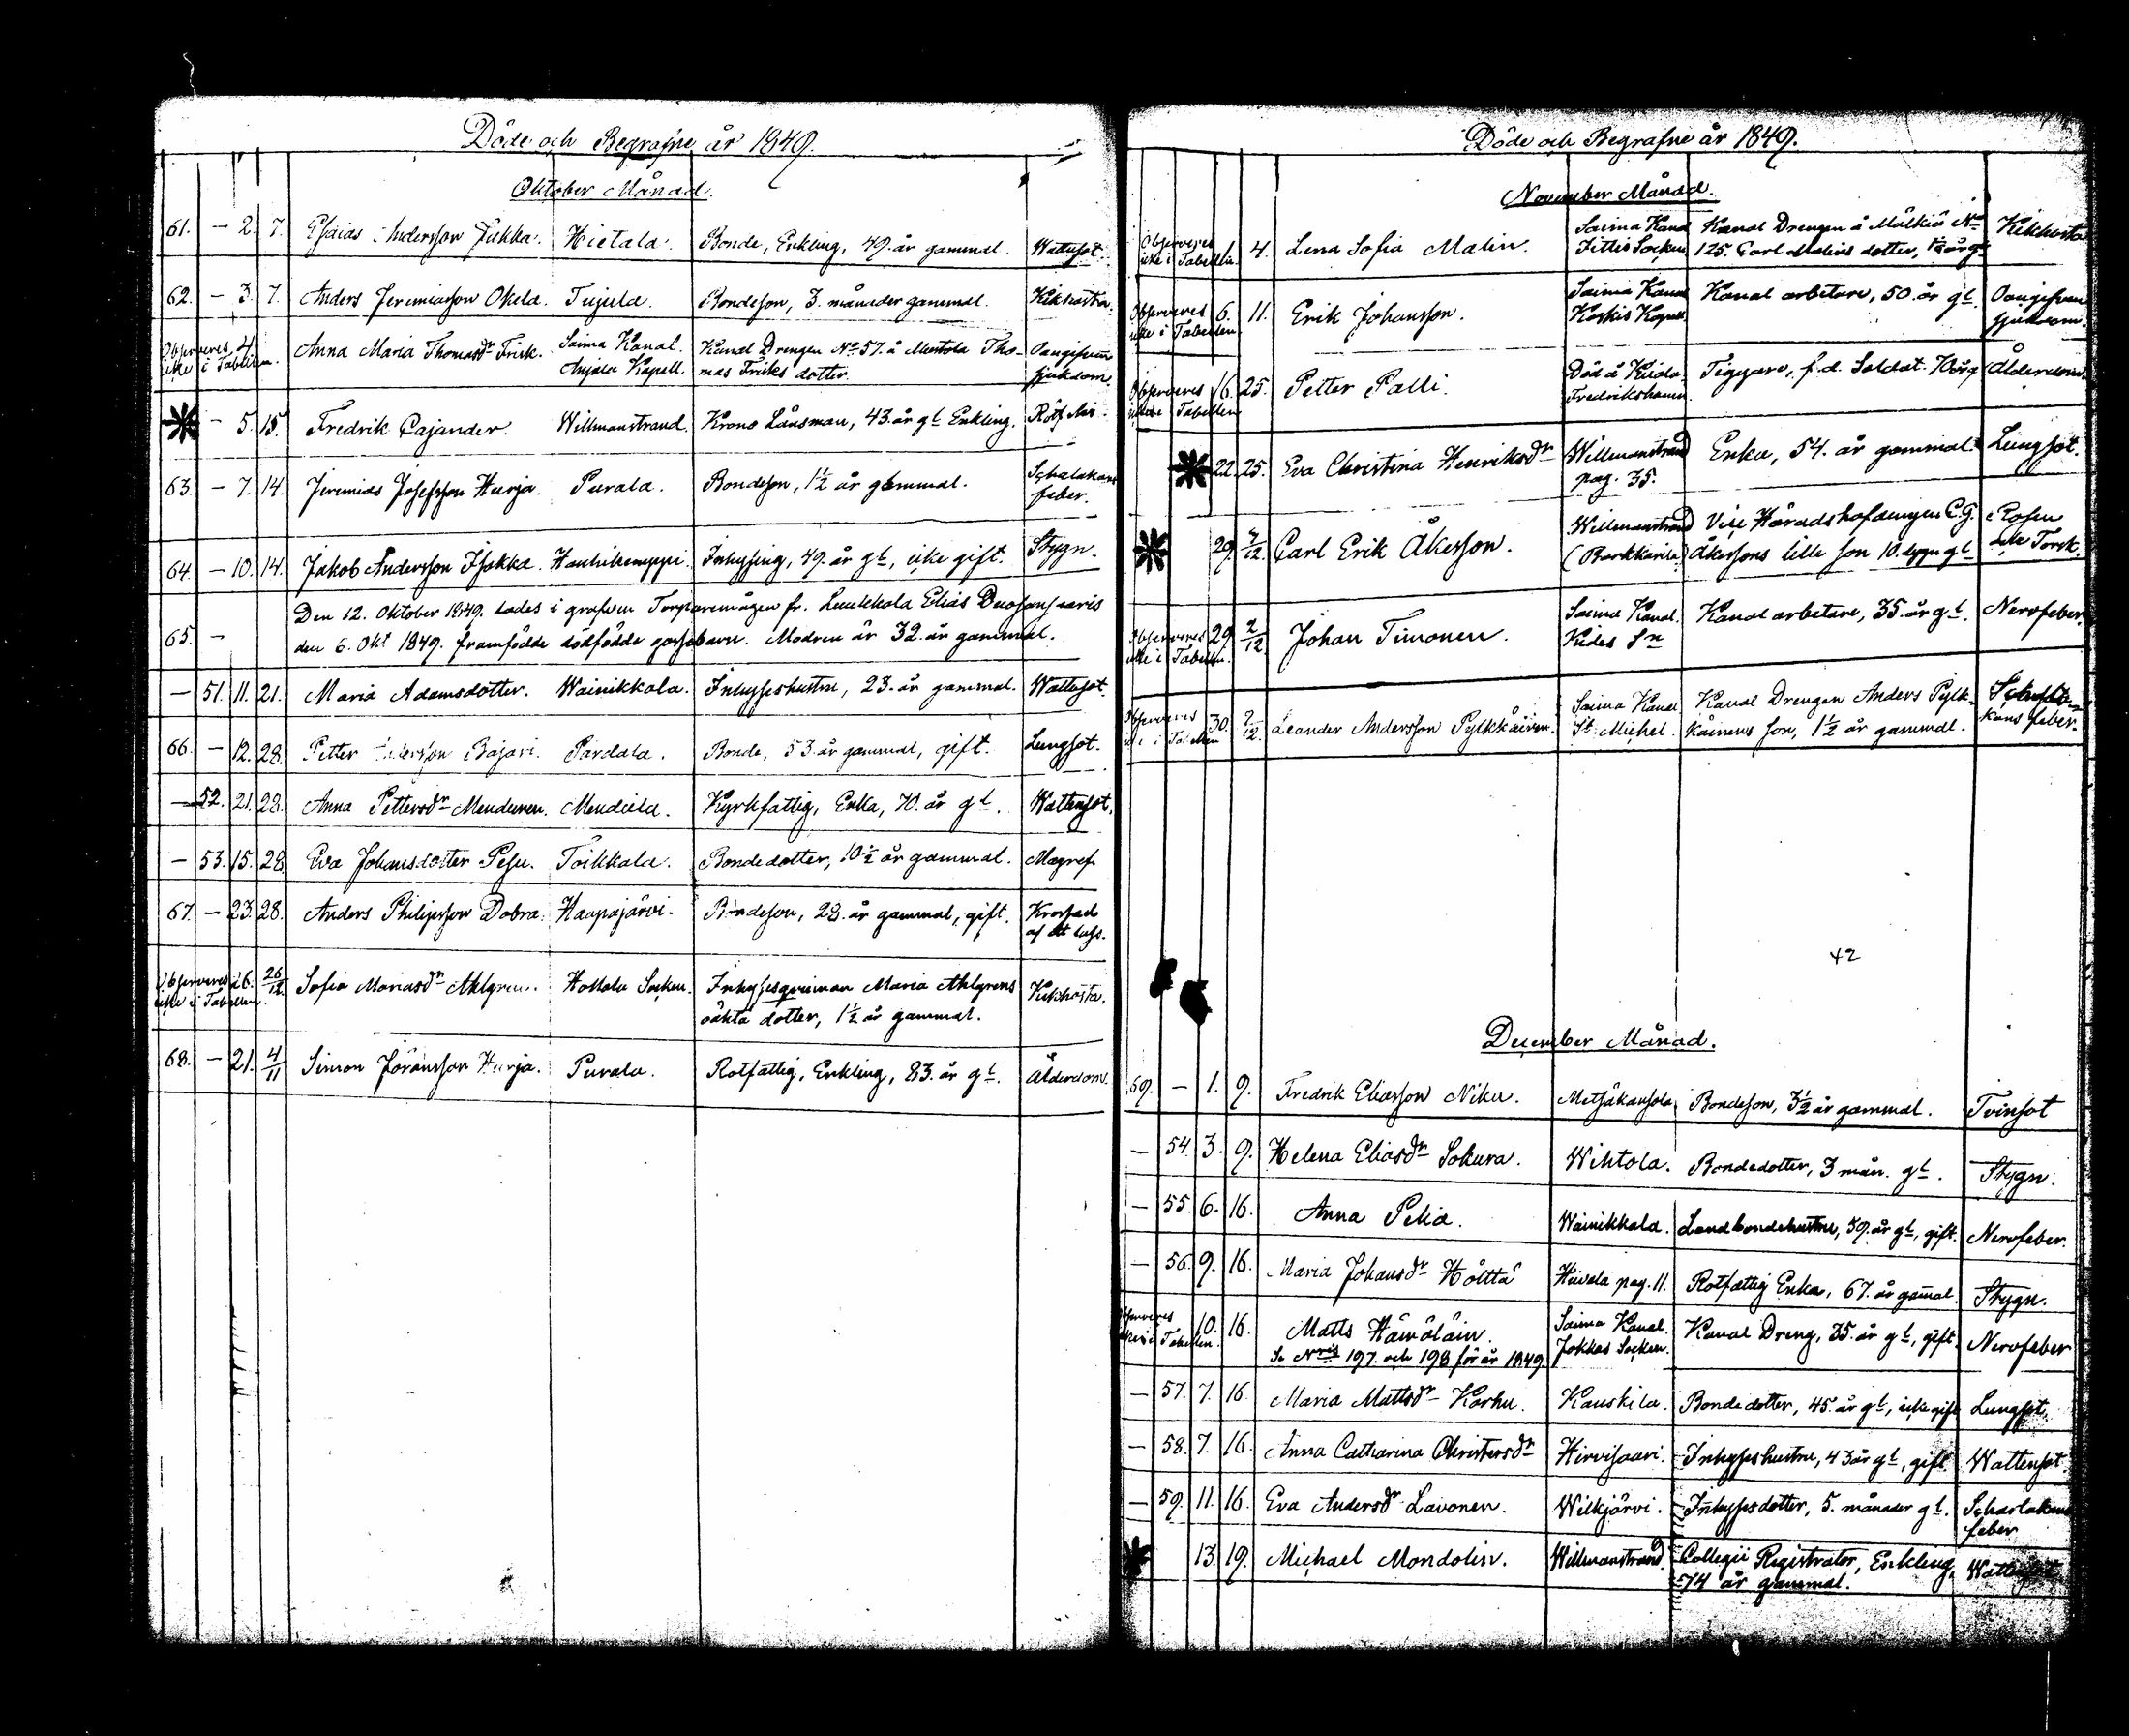 Döde och Begrafne år 1849.
Oktober Månad.
61. – 2. 7. Esaias Andersson Jukka. Hietala. Bonde, Enkling, 49. år gammal. Wattusot.
62. – 3. 7. Anders Jeremiasson Okela. Tujula. Bondeson, 3. månader gammal. Kikhosta.
Observeres 4. Anna Maria Thomasdr Frisk. Saima Kanal. Kanal Drengen No 57. å Mustola Tho- Oangifven
icke i Tabellen. Anjala Kapell. mas Frisks dotter. sjukdom.
– 5. 15. Fredrik Cajander. Willmanstrand. Krono Länsman, 43. år gl Enkling.
63. – 7. 14. Jeremias Josefsson Hurja. Purala. Bondeson, 1½ år gammal. Schalakans
feber.
64. – 10. 14. Jakob Andersson Isokka. Hanhikemppi. Inhysing, 49. år gl, icke gift. Stygn.
Den 12. Oktober 1849. lades i grafven Torparemågen fr. Luukkola Elias
65. – den 6. Okt 1849. framfödde dödfödde gossebarn. Modren är 32. år gammal.
– 51. 11. 21. Maria Adamsdotter. Wainikkala. Inhyseshustru, 23. år gammal. Wattusot.
66. – 12. 28. Petter Andersson Bäjäri. Pardala. Bonde, 53. år gammal, gift. Lungsot.
– 52. 21. 28. Anna Pettersdr Menduren. Mendola. Kyrkfattig, Enka, 70. år gl. Wattusot.
– 53. 15. 28. Eva Johansdotter Pesu. Toikkala. Bondedotter, 10½ år gammal. Magref.
67. – 23. 28. Anders Philipsson Dobra. Haapajärvi. Bondeson, 28. år gammal, gift. Krossad
af ett lass.
Observeres 26. 26/12 Sofia Mariasdr Ahlgren. Hollola Socken. Inhysesqvinnan Maria Ahlgrens Kikhosta.
icke i Tabellen oäkta dotter, 1½ år gammal.
68. – 21. 4/11 Simon Jöransson Hurja. Purala. Rotfattig, Enkling, 83. år gl. Ålderdom.
Döde och Begrafne år 1849.
November Månad.
Observeres 1. 4. Lena Sofia Malin. Saima Kanal Kanal Drengen å Mälkiä No Kikhosta
icke i Tabellen. Sittis Socken 125. Carl Malins dotter, 1½ år gl
Observeres 6. 11. Erik Johansson. Saima Kanal Kanal arbetare, 50. år gl. Oangifven
icke i Tabellen Koskis Kapell. sjukdom.
Observeres 16. 25. Petter Palli. Död å Tiggare, f.d. Soldat. 70 år g Ålderdom.
icke i Tabellen Fredrikshamn
22. 25. Eva Christina Henriksdr Willmanstrand Enka, 54. år gammal. Lungsot.
pag. 35.
29. 2/12. Carl Erik Åkerson. Willmanstrand Vice Häradshöfdingen C.G. Rosen
(Parkkarila) Åkersons lille son 10. dygn gl
Observeres 29. 2/12. Johan Timonen. Saima Kanal. Kanal arbetare, 35. år gl. Nervfeber.
icke i Tabellen. Kides Sn
Observeres 30. 2/12. Leander Andersson Pylkkäinen. Saima Kanal Kanal Drengen Anders Pylk-
icke i Tabellen St Michel. käinens son, 1½ år gammal. kans feber.
42
December Månad.
69. – 1. 9. Fredrik Eliasson Niku. Metsäkansola Bondeson, 3½ år gammal. Tvinsot
– 54. 3. 9. Helena Eliasdr Sokura. Wihtola. Bondedotter, 3 mån. gl. Stygn.
– 55. 6. 16. Anna Pekia. Wainikkala. Landbondehustru, 39. år gl, gift. Nervfeber.
– 56. 9. 16. Maria Johansdr Hölttä Hiivola pag. 11. Rotfattig Enka, 67. år gamal. Stygn.
Observeres 10. 16. Matts Hämäläin. Saima Kanal. Kanal Dreng, 35. år gl, gift. Nervfeber
icke i Tabellen. Se Nris 197. och 198 för år 1849. Jokkas Socken.
– 57. 7. 16. Maria Mattsdr Korhu. Kauskila. Bondedotter, 45. år gl, icke gift Lungsot.
– 58. 7. 16. Anna Catharina Christersdr Hirvisaari. Inhyseshustru, 43 år gl, gift. Wattusot.
– 59. 11. 16. Eva Andersdr Lavonen. Wilkjärvi. Inhysesdotter, 5. månader gl. Scharlakans
feber
13. 19. Michael Mondolin. Willmanstrand. Collegii Registrator, Enkling, Wattusot
74 år gammal.